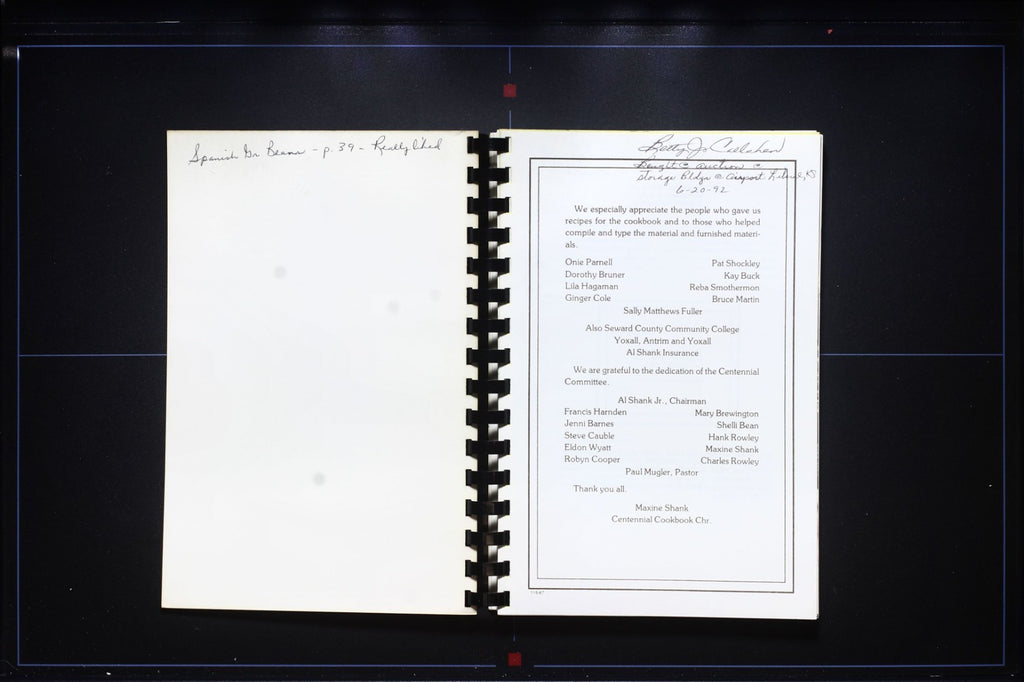 Spanish Gr Beans - p. 39 - Really liked
Betty Jo Callahan
Bought @ auction @
Storage Bldgs @ Airport Liberal, KS
6-20-92
We especially appreciate the people who gave us
recipes for the cookbook and to those who helped
compile and type the material and furnished materi-
als.
Onie Parnell Pat Shockley
Dorothy Bruner Kay Buck
Lila Hagaman Reba Smothermon
Ginger Cole Bruce Martin
Sally Matthews Fuller
Also Seward County Community College
Yoxall, Antrim and Yoxall
Al Shank Insurance
We are grateful to the dedication of the Centennial
Committee.
Al Shank Jr., Chairman
Francis Harnden Mary Brewington
Jenni Barnes Shelli Bean
Steve Cauble Hank Rowley
Eldon Wyatt Maxine Shank
Robyn Cooper Charles Rowley
Paul Mugler, Pastor
Thank you all.
Maxine Shank
Centennial Cookbook Chr.